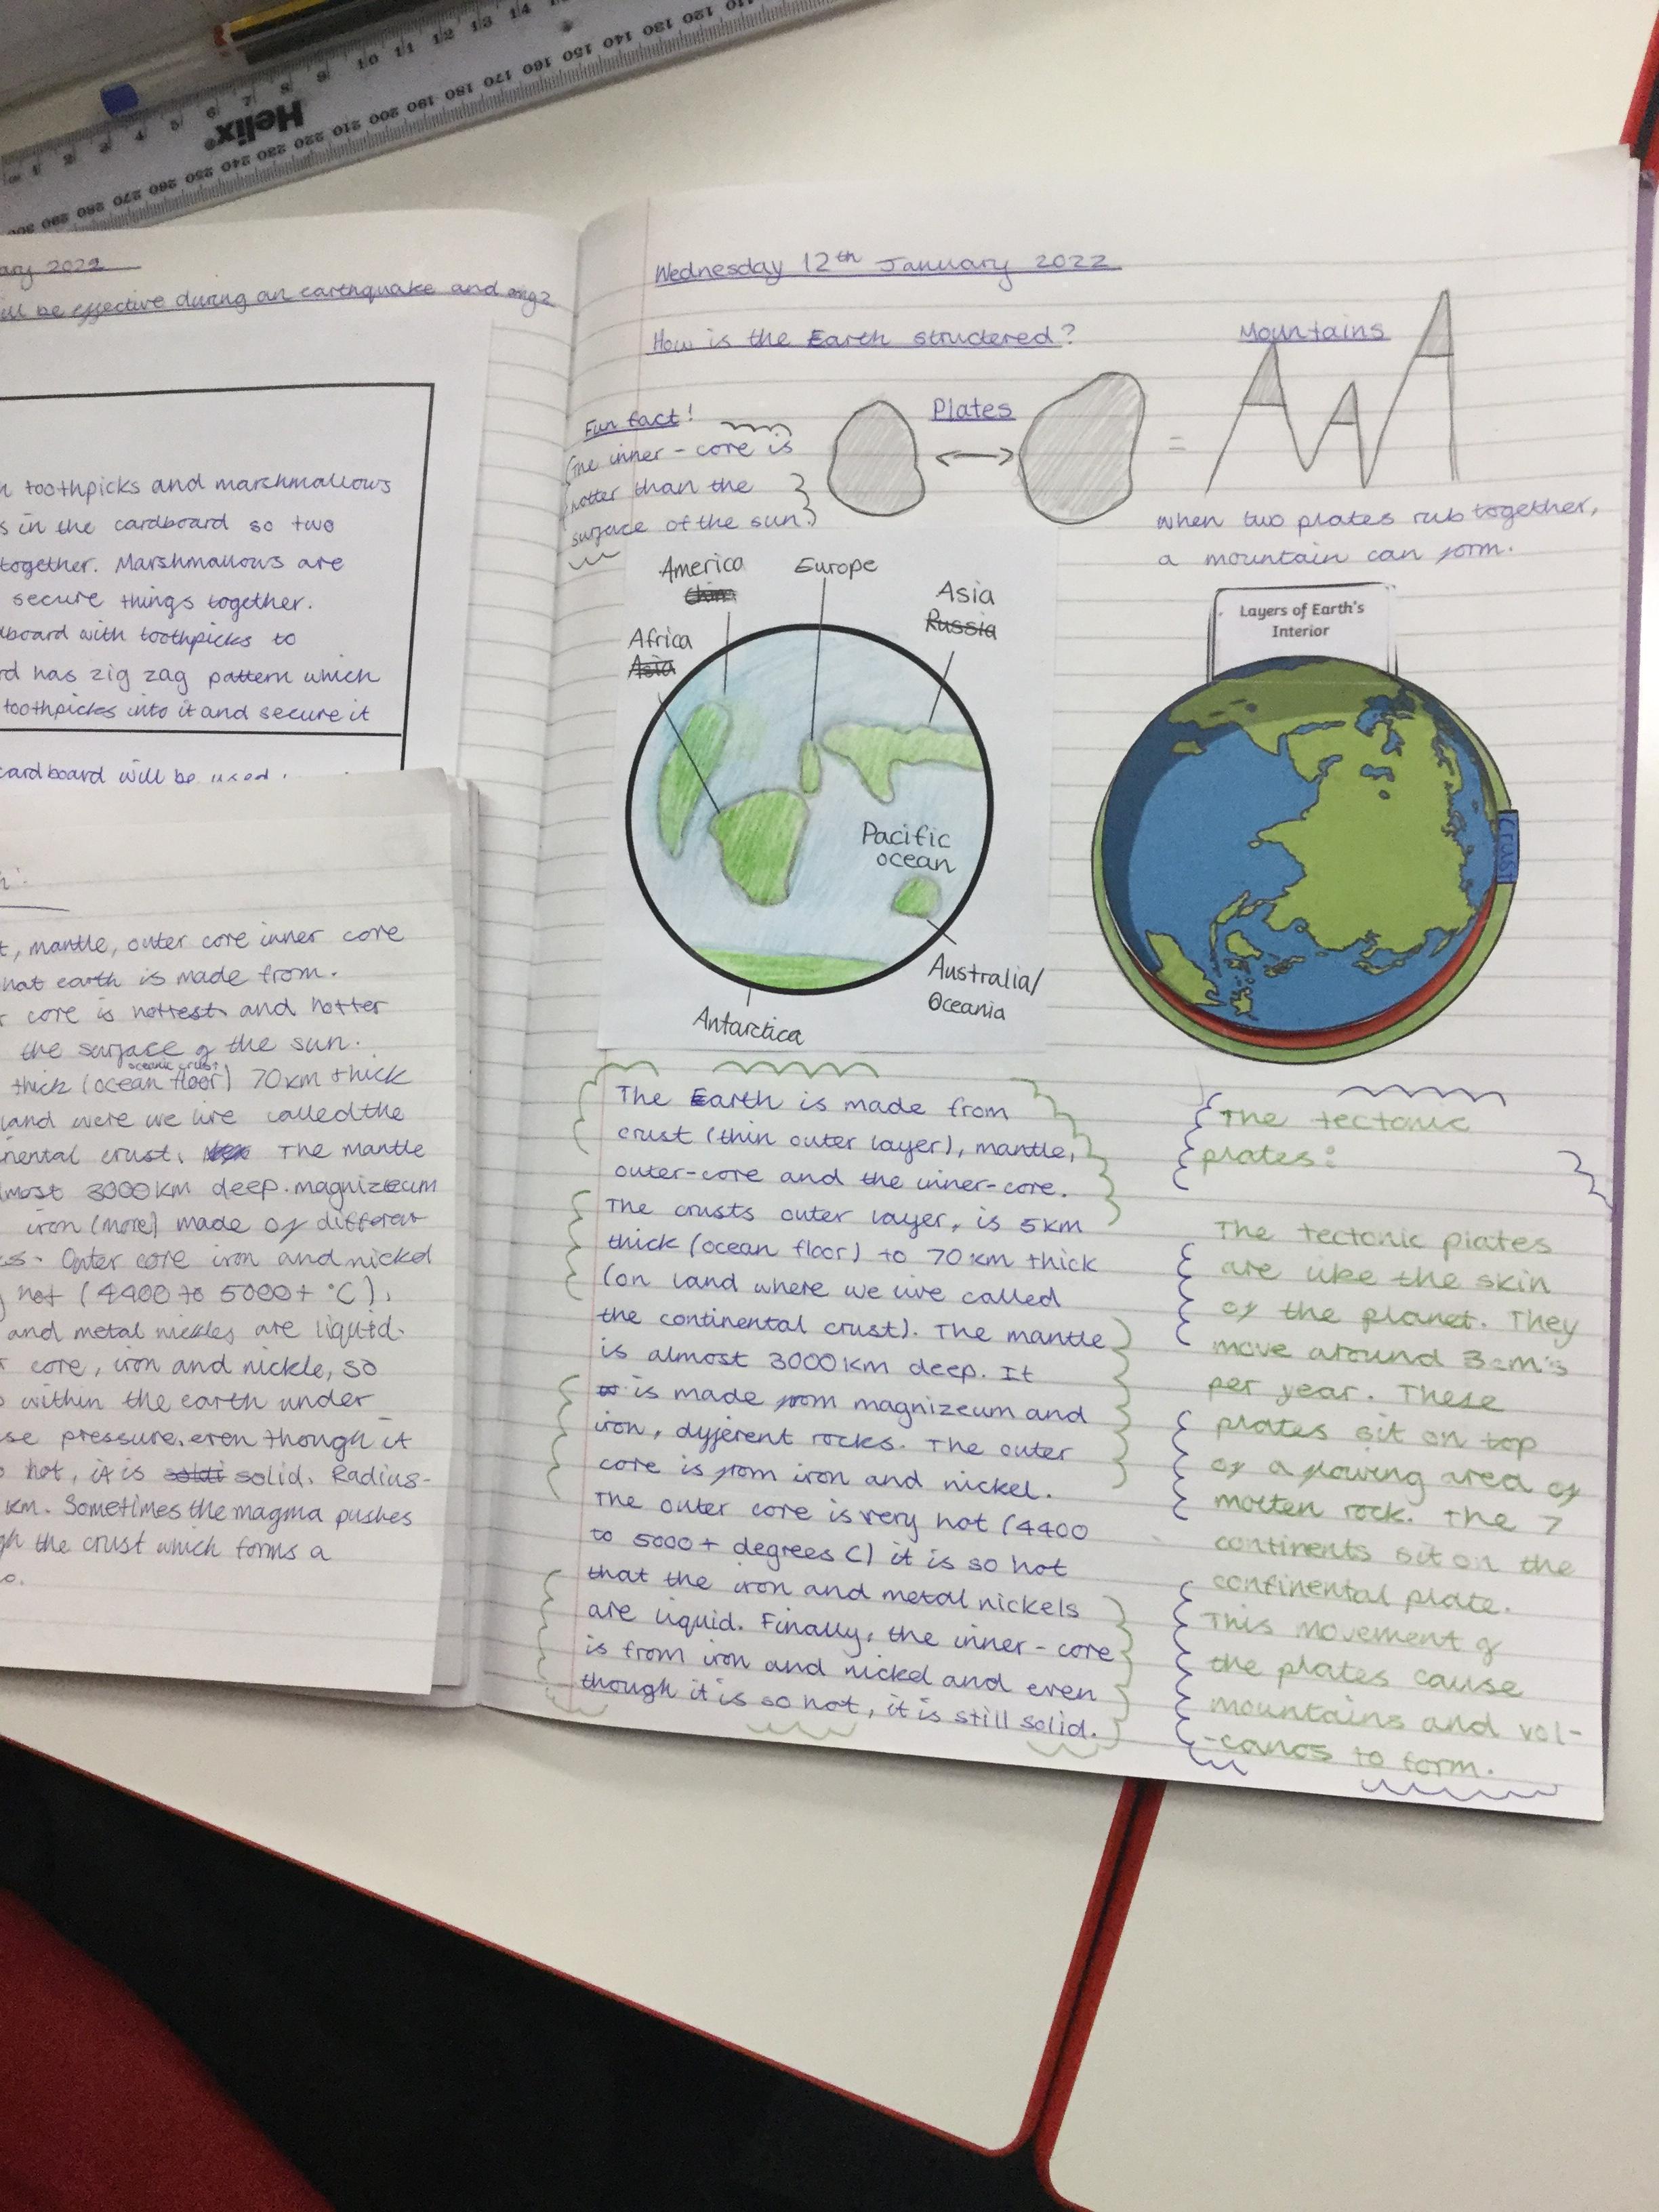 Helix
ary 2022
ill be effective during an earthquake and
n toothpicks and marshmallows
s in the cardboard so two
together. Marshmallows are
secure things together.
dboard with toothpicks to
rd has zig zag pattern which
toothpicks into it and secure it
cardboard will be used
t, mantle, outer core inner core
hat earth is made from.
r core is hottest and hotter
the surface of the sun.
oceanic crust
thick (ocean floor) 70km thick
land were we live called the
nental crust. The mantle
lmost 3000km deep. magnizeum
iron (more) made of different
es. Outer core iron and nickel
y hot (4400 to 5000+ °C).
and metal nickles are liquid.
r core, iron and nickle, so
p within the earth under
se pressure. even though it
o hot, it is soldi solid. Radius-
km. Sometimes the magma pushes
gh the crust which forms a
o.
Wednesday 12th January 2022
How is the Earth structered?
Fun fact!
The inner-core is
hotter than the
surface of the sun.
Plates
=
Mountains
when two plates rub together,
a mountain can form.
America
China
Europe
Asia
Russia
Africa
Asia
Pacific
ocean
Australia/
Oceania
Antarctica
Layers of Earth's
Interior
Crust
The Earth is made from
crust (thin outer layer), mantle,
outer-core and the inner-core.
The crusts outer layer, is 5km
thick (ocean floor) to 70km thick
(on land where we live called
the continental crust). The mantle
is almost 3000km deep. It
is made from magnizeum and
iron, dyjerent rocks. The outer
core is from iron and nickel.
The outer core is very hot (4400
to 5000+ degrees C) it is so hot
that the iron and metal nickels
are liquid. Finally, the inner-core
is from iron and nickel and even
though it is so hot, it is still solid.
The tectonic
plates:
The tectonic plates
are like the skin
of the planet. They
move around 3cm's
per year. These
plates sit on top
of a flowing area of
molten rock. The 7
continents sit on the
continental plate.
This movement of
the plates cause
mountains and vol-
-canos to form.